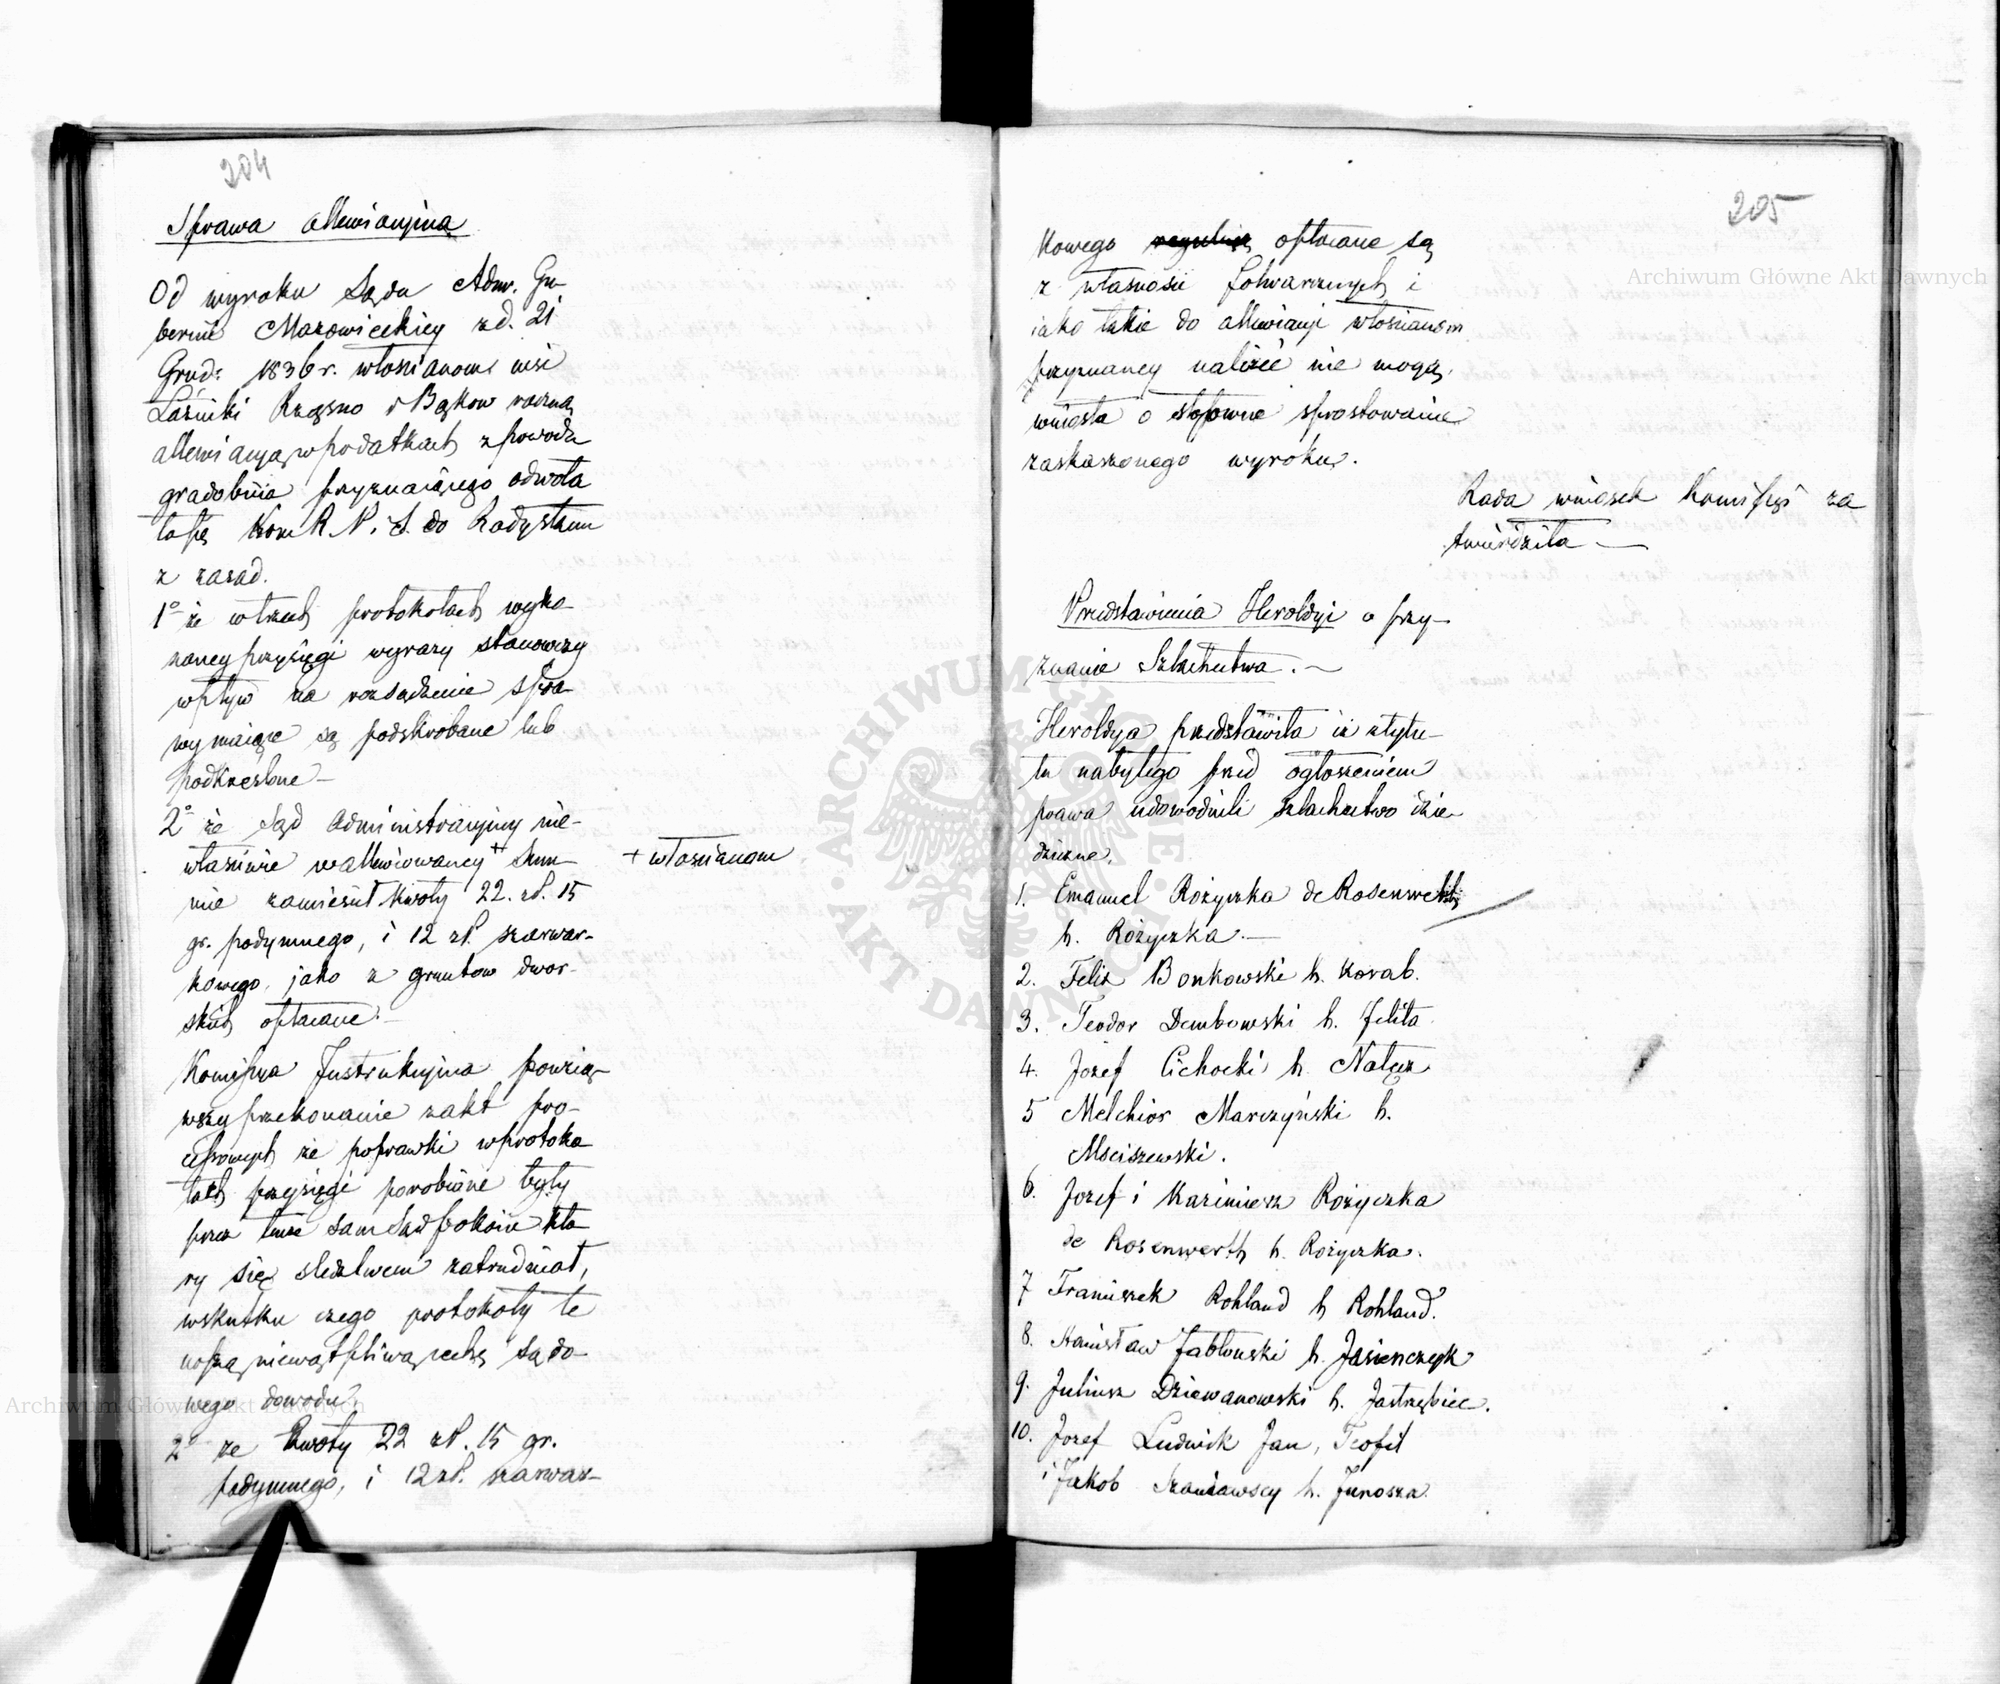 204
Sprawa allewiacyjna
Od wyroku Sądu Adm. Gu-
bernii Mazowieckiey z d. 21
Grud: 1836 r. włościanom wsi
Łaźniki Rząsno i Bąkow roczną
allewiacyą w podatkach z powodu
gradobicia przyznaiącego odwoła
ła się Kom R. P. i S. do Rady Stanu
z zasad.
1o że w trzech protokołach wyko-
naney przysięgi wyrazy stanowczy
wpływ na rozsądzenie spra-
wy maiące są podskrobane lub
podkreslone –
2o że Sąd Administracyjny nie-
własciwie w allewiowaney + Sum-
mie zamieścił kwoty 22. zł. 15
gr. podymnego, i 12 zł. szarwar-
kowego, jako z gruntow dwor-
skich opłacane. –
Kommissya Instrukcyjna powzią-
wszy przekonanie z akt pro-
cessowych że poprawki w protoko
łach przysięgi porobione były
przez tenże sam Sąd Pokoiu któ
ry się sledztwem zatrudniał,
wskutku czego protokoły te
noszą niewątpliwą cechę sądo-
wego dowodu.
2o że kwoty 22 zł. 15 gr.
podymnego, i 12 zł. szarwar-
+ włościanom
205
kowego opłacane są
z własnosci folwarcznych i
iako takie do allewiacyi włościanom
przyznaney należeć nie mogą,
wniosła o stosowne sprostowanie
zaskarzonego wyroku.
Rada wniosek Komissyi za
twierdziła —
Przedstawienia Heroldyi o przy-
znanie Szlachectwa. —
Heroldya przedstawiła iż z tytu-
łu nabytego przed ogłoszeniem
prawa udowodnili szlachectwo dzie-
dziczne.
1. Emanuel Rożyczka de Rosenwerth
h. Rożyczka. —
2. Felix Bonkowski h. Korab.
3. Teodor Dembowski h. Jelita
4. Jozef Cichocki h. Nałęcz
5 Melchior Marczyński h.
Msciszewski.
6. Jozef i Kazimierz Rożyczka
de Rosenwerth h. Rożyczka.
7 Franciszek Rohland h Rohland.
8. Stanisław Jabłonski h. Jasienczyk
9. Juliusz Dziewanowski h. Jastrzębiec.
10. Jozef Ludwik Jan, Teofil
i Jakob Szaniawscy h. Junosza.
Archiwum Główne Akt Dawnych
Archiwum Główne Akt Dawnych
ARCHIWUM GŁÓWNE AKT DAWNYCH